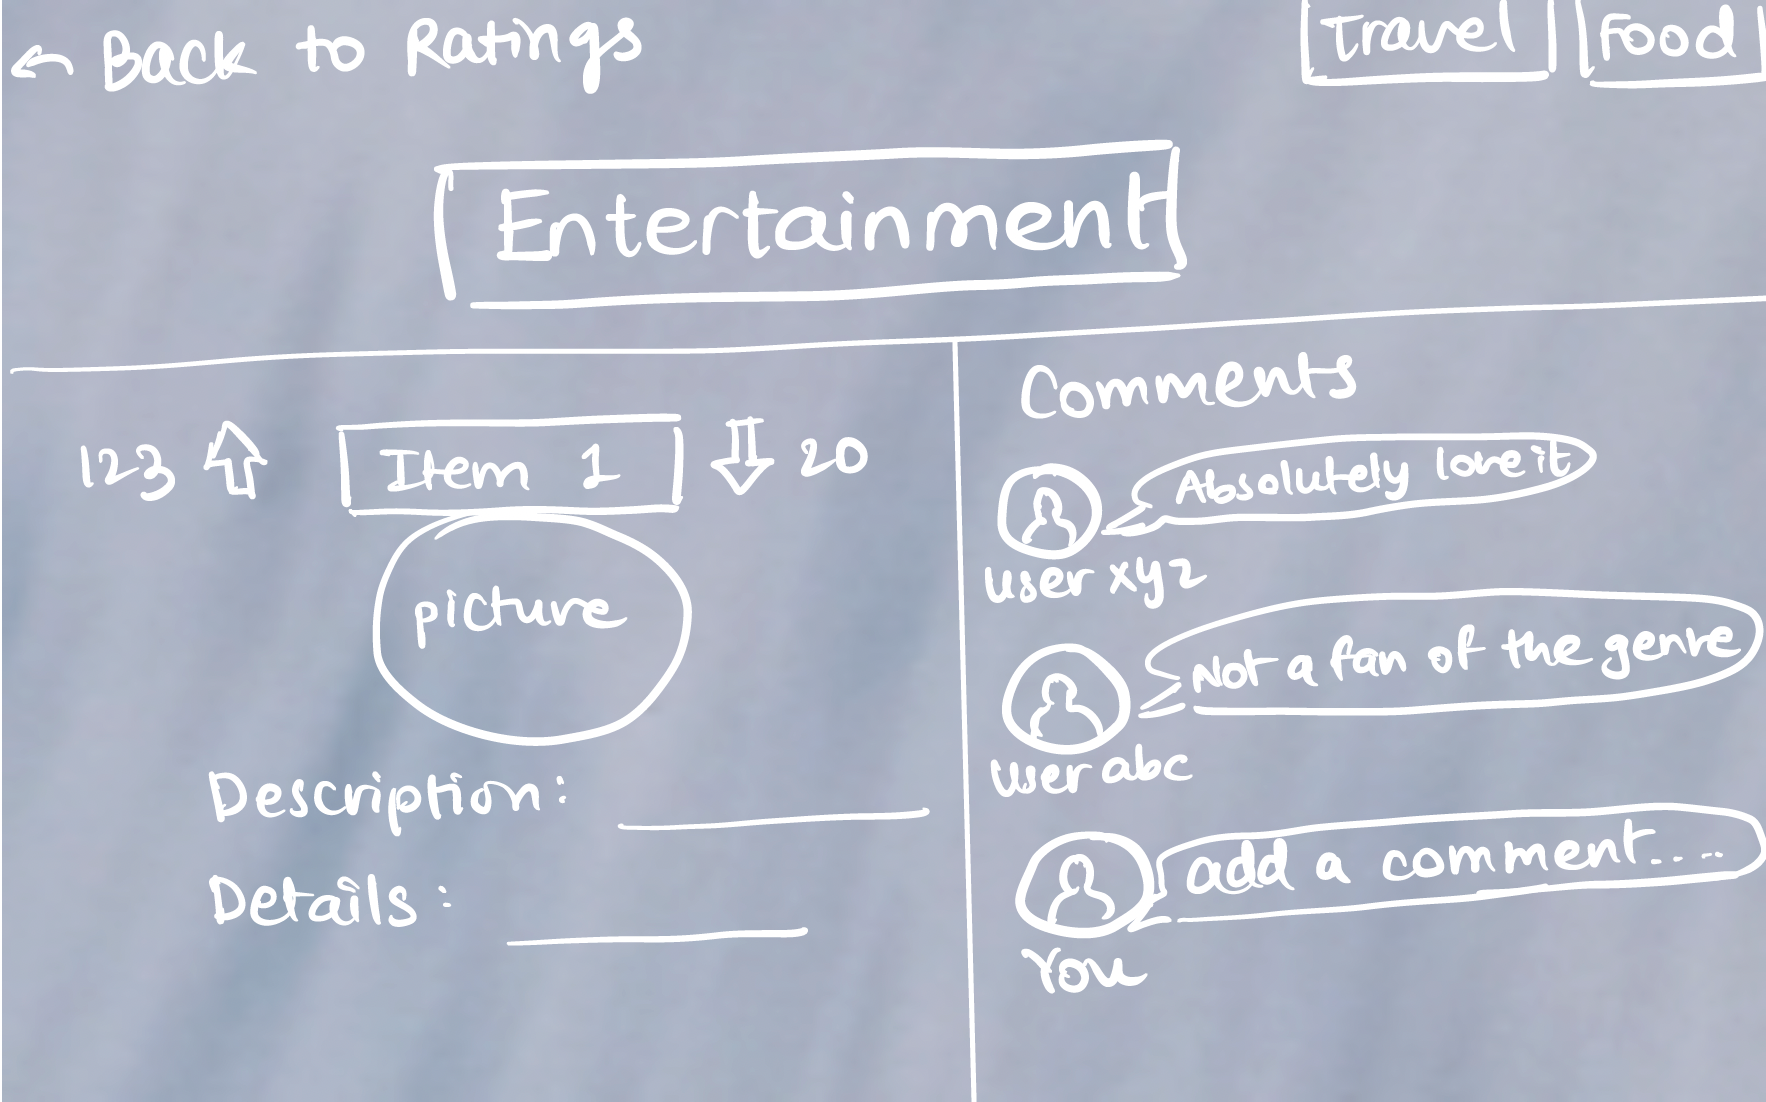 ← Back to Ratings
Travel
Food
Entertainment
123
Item 1
20
picture
Description:
Details:
Comments
Absolutely love it
User xyz
Not a fan of the genre
User abc
add a comment....
You